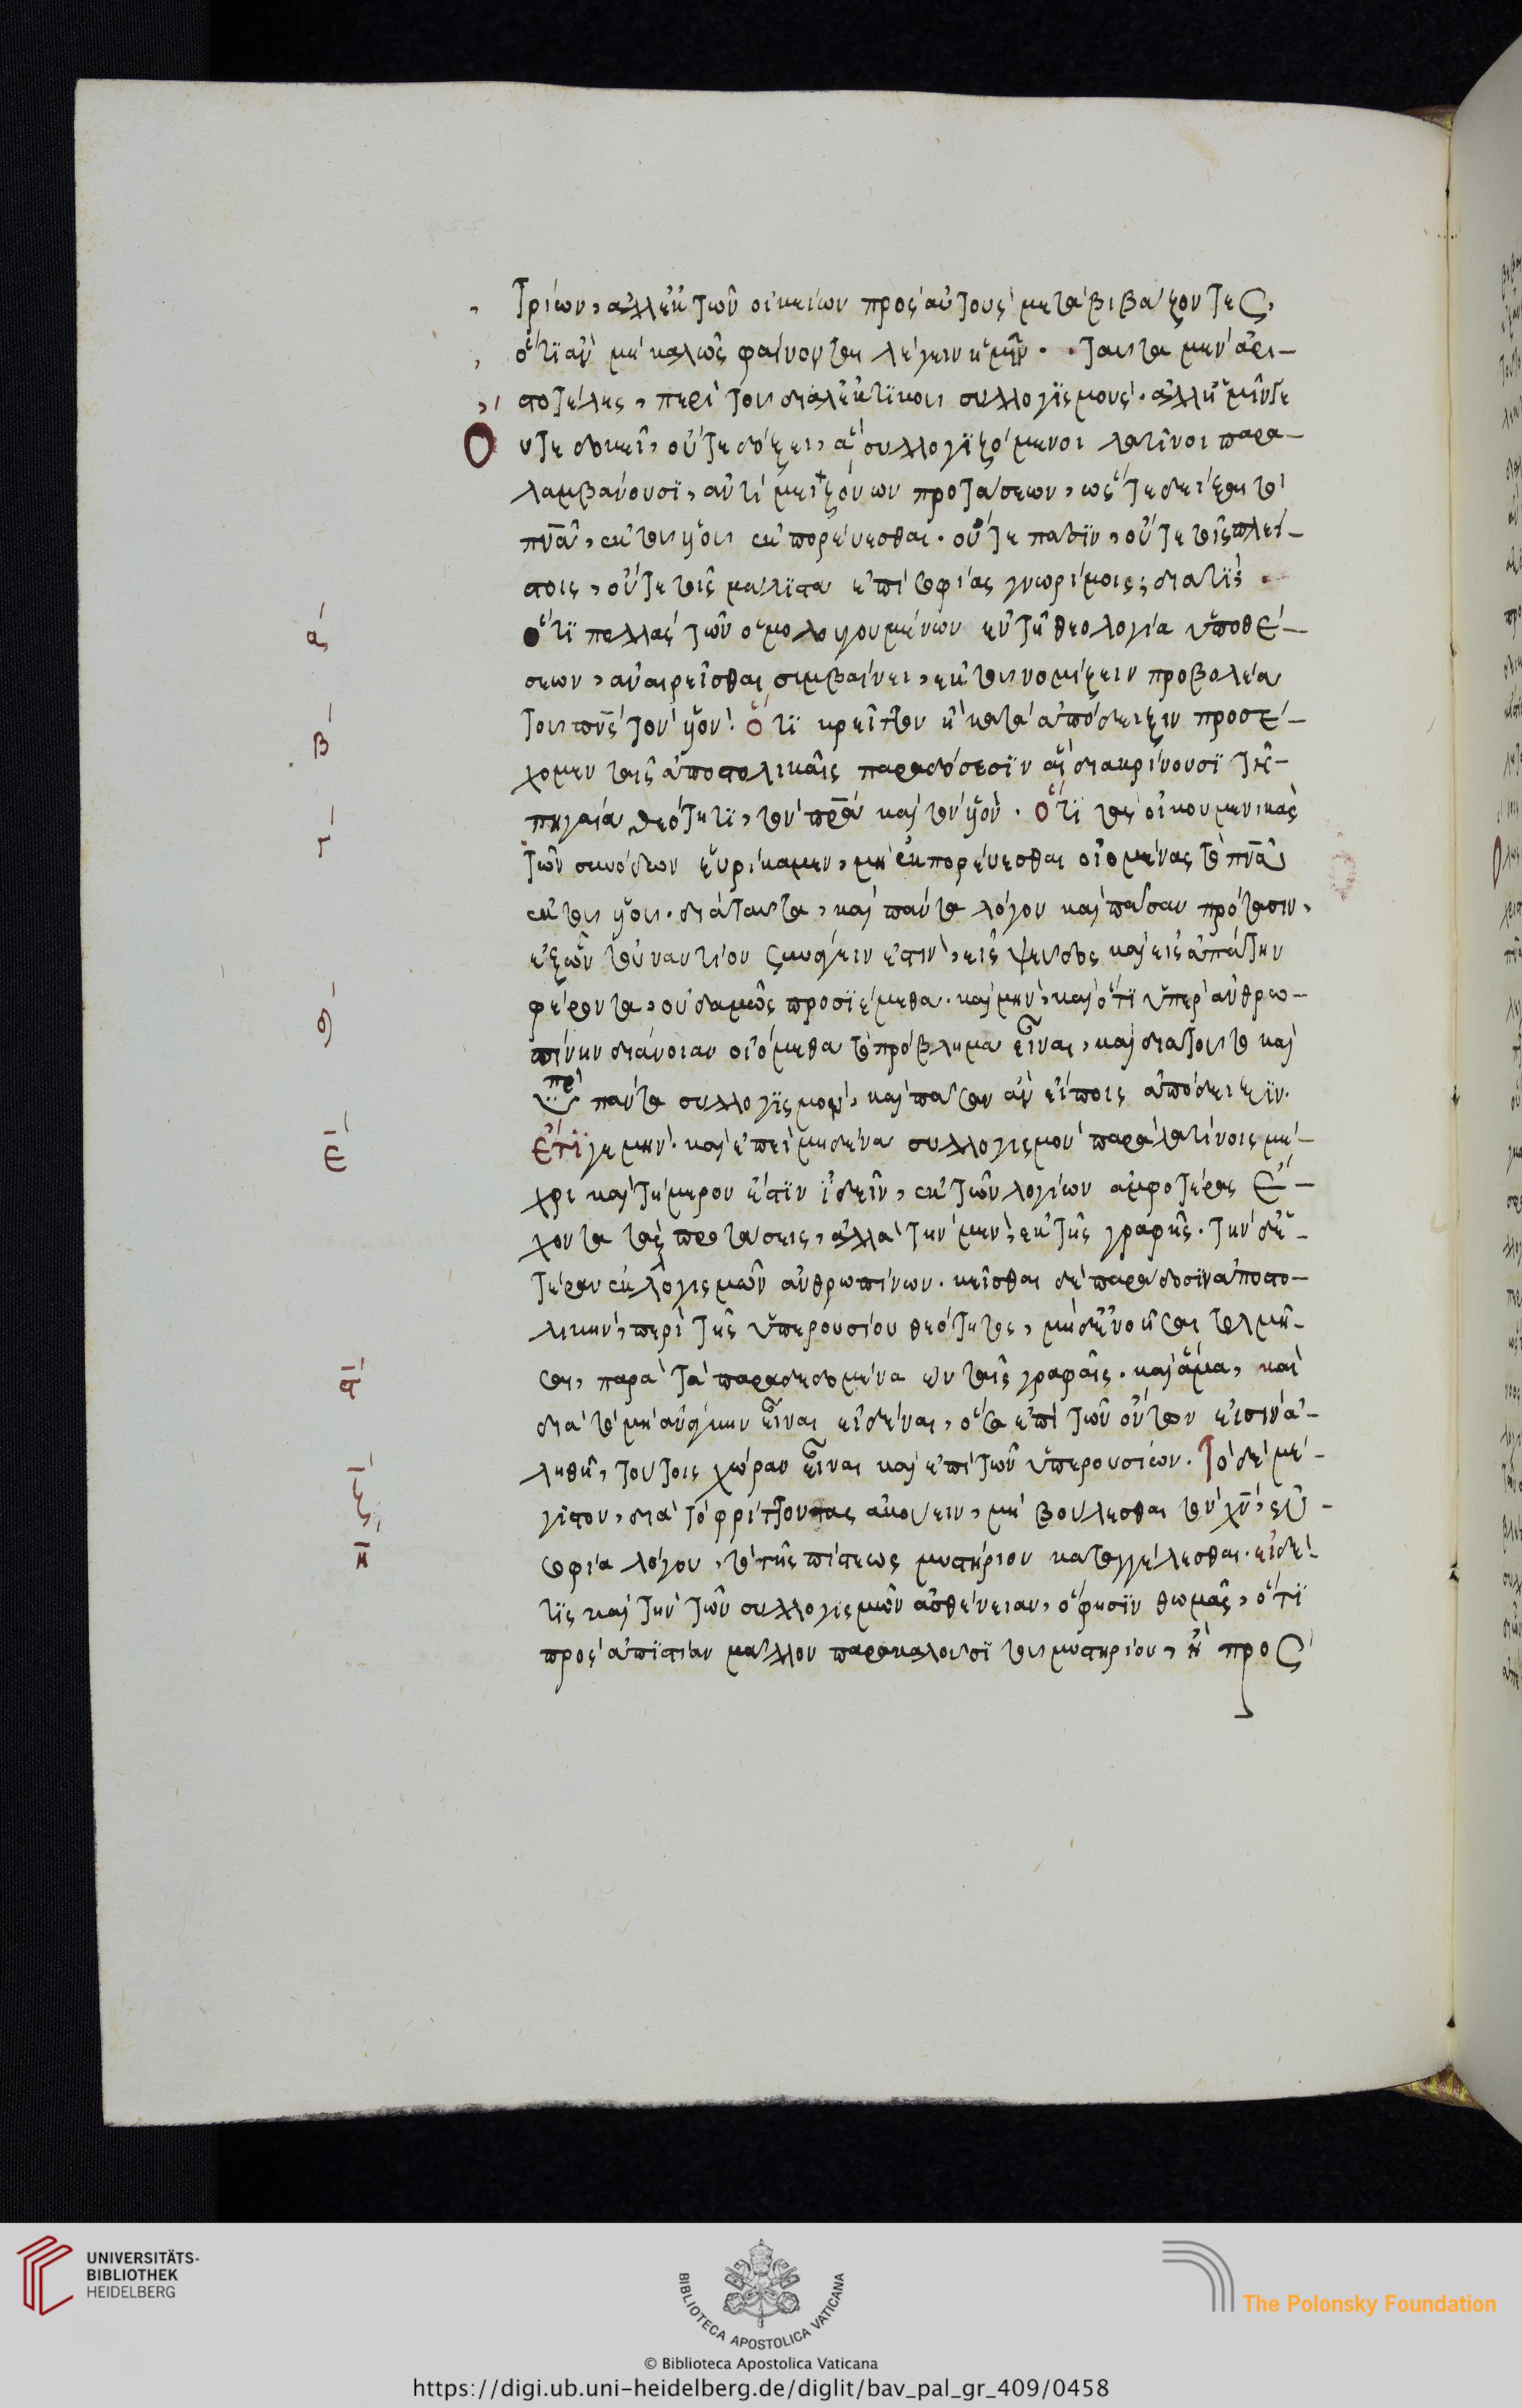 τρίων, ἀλλ' ἐκ τῶν οἰκείων πρὸς αὐτοὺς μεταβιβάζοντες,
ὅτι ἂν μὴ καλῶς φαίνονται λέγειν ἡμῖν. ταῦτα μὲν ἀρι-
στοτέλης, περὶ τοῦ διαλεκτικοῦ συλλογισμοῦ. ἀλλ' ἡμῖν δὲ
οὔτε δοκεῖ, οὔτε δόξει, ἃ συλλογιζόμενοι λατῖνοι παρα-
λαμβάνουσι, ἀντὶ μειζόνων προτάσεων, ὥστε δεῖξαι τὸ
πνᾶ, ἐκ τοῦ υἱοῦ ἐκπορεύεσθαι. οὔτε πᾶσιν, οὔτε τοῖς πλεί-
στοις, οὔτε τοῖς μάλιστα ἐπὶ σοφίας γνωρίμοις; διατί;
ὅτι πολλὰς τῶν ὁμολογουμένων ἐν τῇ θεολογία ὑποθέ-
σεων, ἀναιρεῖσθαι συμβαίνει, ἐκ τοῦ νομίζειν προβολέα
τοῦ πνς τὸν υἱόν. ὅτι κρεῖττον ἢ κατὰ ἀπόδειξιν προσέ-
χομεν ταῖς ἀποστολικαῖς παραδόσεσιν αἳ διακρίνουσι τῇ
πηγαία θεότητι, τὸν πρα καὶ τὸν υἱόν. ὅτι τὰς οἰκουμενικὰς
τῶν συνόδων εὑρίκαμεν, μὴ ἐκπορεύεσθαι οἰομένας τὸ πνᾶ
ἐκ τοῦ υἱοῦ. διὰ ταῦτα, καὶ πάντα λόγον καὶ πᾶσαν πρότασιν,
ἐξ ὧν τοὐναντίον συνάγειν ἐστὶν, εἰς ψεῦδος καὶ εἰς ἀπάτην
φέροντα, οὐδαμῶς προσιέμεθα. καὶ μὴν, καὶ ὅτι ὑπὲρ ἀνθρω-
πίνην διάνοιαν οἰόμεθα τὸ πρόβλημα εἶναι, καὶ διὰ τοῦτο καὶ
ὑπὲρ πάντα συλλογισμὸν, καὶ πᾶσαν ἂν εἴποις ἀπόδειξιν.
ἔτι γε μήν. καὶ ἐπεὶ μηδένα συλλογισμὸν παρὰ λατίνοις μέ-
χρι καὶ τήμερον ἔστιν ἰδεῖν, ἐκ τῶν λογίων ἀμφοτέρας ἔ-
χοντα τὰς προτάσεις, ἀλλὰ τὴν μὲν, ἐκ τῆς γραφῆς. τὴν δὲ ἑ-
τέραν ἐκ λογισμῶν ἀνθρωπίνων. κεῖσθαι δὲ παράδοσιν ἀποστο-
λικὴν, περὶ τῆς ὑπερουσίου θεότητος, μηδὲ ἐννοῆσαι τολμῆ-
σαι, παρὰ τὰ παραδεδομένα ἐν ταῖς γραφαῖς. καὶ ἅμα, καὶ
διὰ τὸ μὴ ἀνάγκην εἶναι εἰδέναι, ὅσα ἐπὶ τῶν ὄντων εἰσὶν ἀ-
ληθῆ, τούτοις χώραν εἶναι καὶ ἐπὶ τῶν ὑπερουσίων. Τὸ δὲ μέ-
γιστον, διὰ τὸ φρίττοντας ἀκούειν, μὴ βούλεσθαι τὸν χν, ἐν
σοφία λόγου, τὸ τῆς πίστεως μυστήριον καταγγέλεσθαι. εἰδέ
τις καὶ τὴν τῶν συλλογισμῶν ἀσθένειαν, ὅ φησιν θωμᾶς, ὅτι
πρὸς ἀπιστίαν μᾶλλον παρακαλοῦσι τοῦ μυστηρίου, ἢ πρὸς
α
β
γ
δ
ε
ζ
η
UNIVERSITÄTS-
BIBLIOTHEK
HEIDELBERG
BIBLIOTECA APOSTOLICA VATICANA
The Polonsky Foundation
© Biblioteca Apostolica Vaticana
https://digi.ub.uni-heidelberg.de/diglit/bav_pal_gr_409/0458